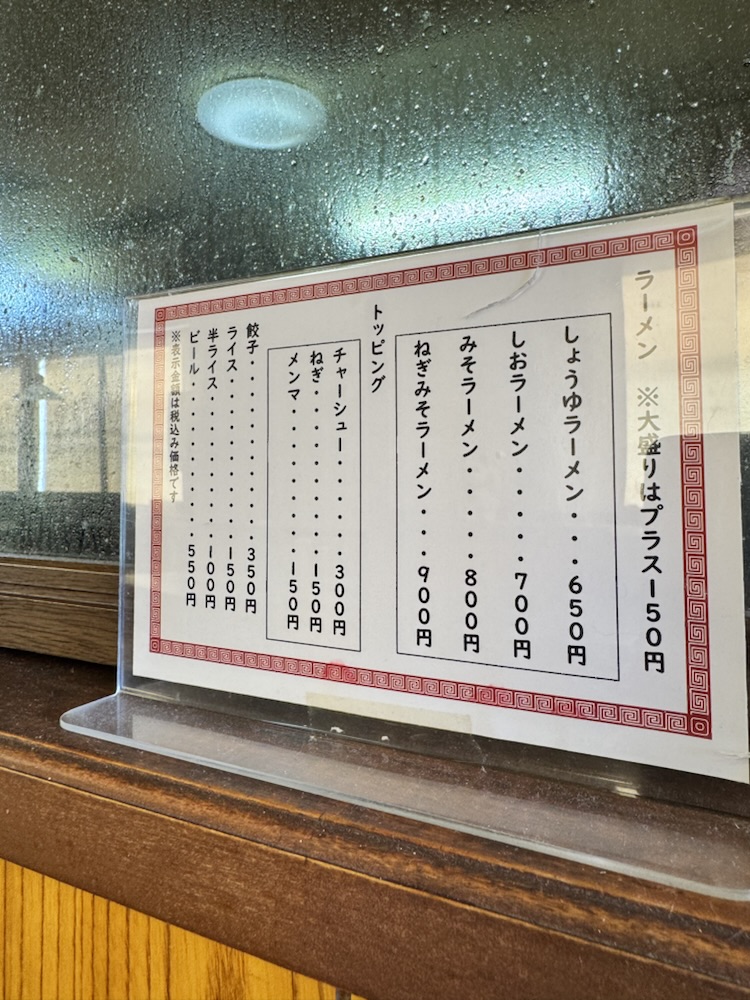 ラーメン ※大盛りはプラス150円
しょうゆラーメン・・・650円
しおラーメン・・・・・700円
みそラーメン・・・・・800円
ねぎみそラーメン・・・900円
トッピング
チャーシュー・・・・・・300円
ねぎ・・・・・・・・・・150円
メンマ・・・・・・・・・150円
餃子・・・・・・・・・・・350円
ライス・・・・・・・・・・150円
半ライス・・・・・・・・・100円
ビール・・・・・・・・・・550円
※表示金額は税込み価格です